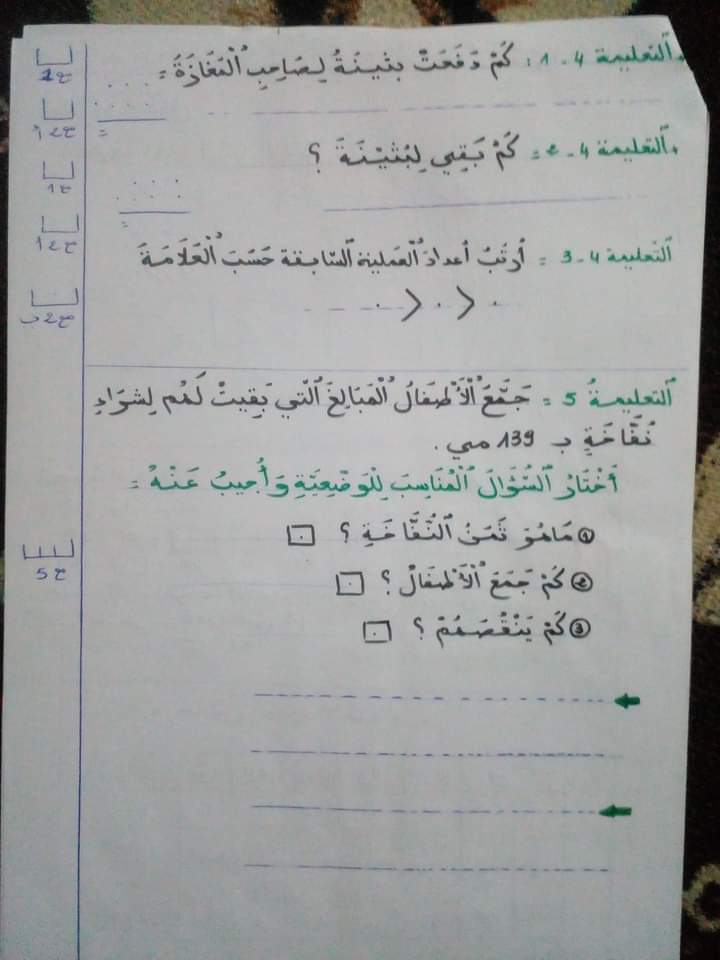 التعليمة 4 - 1 : كَمْ دَفَعَتْ بثينَةُ لِصَاحِبِ الْمَغَازَةُ :
=
التعليمة 4 - 2 = كَمْ بَقِيَ لِبُثَيْنَةَ ؟
=
التعليمة 4 - 3 = أُرَتِّبُ أعدادَ الْعملية السّابقة حَسَبَ الْعَلَامَةَ
. > . > .
التعليمةُ 5 = جَمَّعَ الْأَطْفَالُ الْمَبَالِغَ الّتي بَقِيتْ لَهُم لِشِرَاءِ
نُفَّاخَةٍ بـ 139 مي .
أَخْتَارُ السُّؤَالَ الْمُنَاسِبَ لِلْوَضْعِيَّةِ وَأُجِيبُ عَنْهُ =
① مَاهُوَ ثَمَنُ النُّفَّاخَةِ ؟
② كَمْ جَمَعَ الْأَطْفَالُ ؟
③ كَمْ يَنْقُصُهُمْ ؟
مع 1
مع 2 أ
مع 1
مع 2 أ
مع 2 ب
مع 5